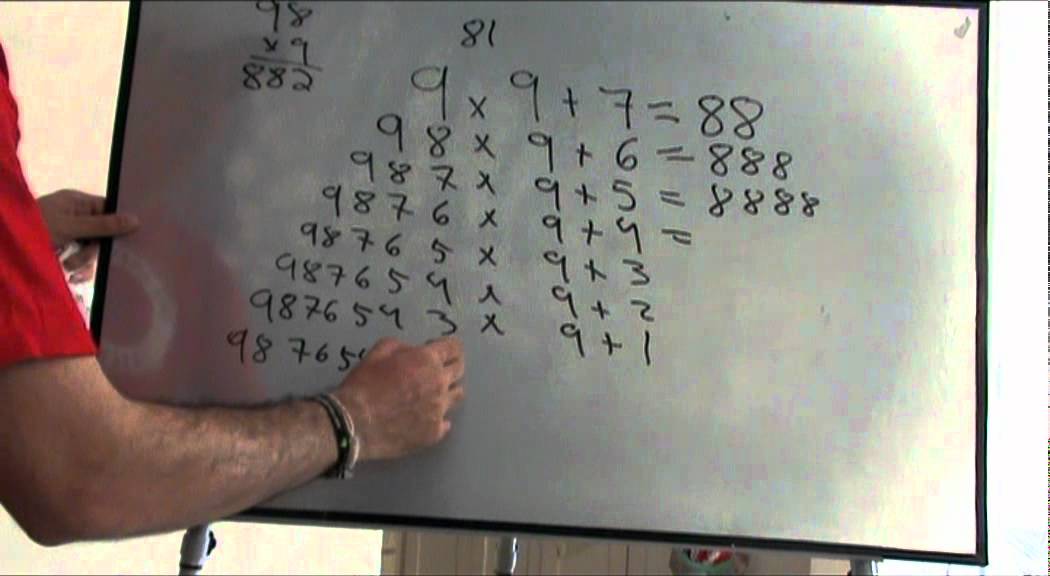 98
× 9
882
81
9 × 9 + 7 = 88
98 × 9 + 6 = 888
987 × 9 + 5 = 8888
9876 × 9 + 4 =
98765 × 9 + 3
987654 × 9 + 2
9876543 × 9 + 1
98765